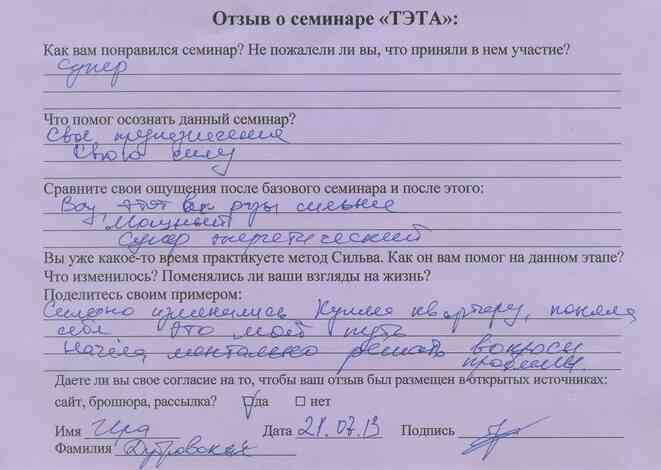 Отзыв о семинаре «ТЭТА»:
Как вам понравился семинар? Не пожалели ли вы, что приняли в нем участие?
Супер
Что помог осознать данный семинар?
Свое предназначение
Свою силу
Сравните свои ощущения после базового семинара и после этого:
Вау этот в разы сильнее
Мощный
Супер энергетический
Вы уже какое-то время практикуете метод Сильва. Как он вам помог на данном этапе?
Что изменилось? Поменялись ли ваши взгляды на жизнь?
Поделитесь своим примером:
Сильно изменились Купила квартиру, поняла
себя Это мой путь
Начала ментально решать вопросы
проблемы.
Даете ли вы свое согласие на то, чтобы ваш отзыв был размещен в открытых источниках:
сайт, брошюра, рассылка? да нет
Имя Ира Дата 21.07.13 Подпись
Фамилия